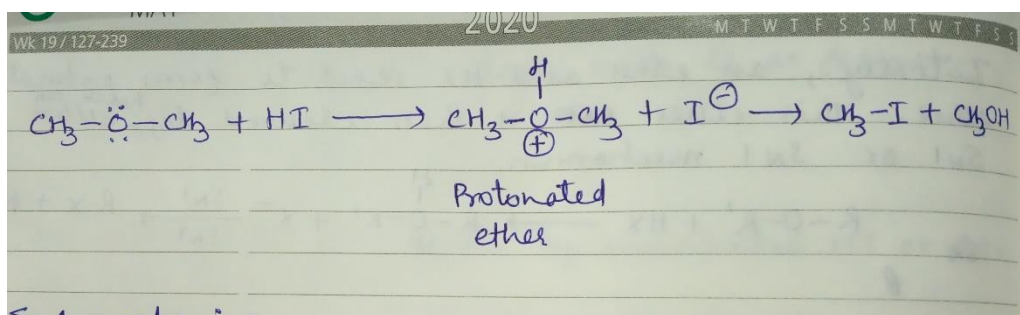 2020
Wk 19/127-239
M T W T F S S M T W T F S S
H
CH₃-Ö-CH₃ + HI ⟶ CH₃-O-CH₃ + I⊖ ⟶ CH₃-I + CH₃OH
⊕
Protonated
ether